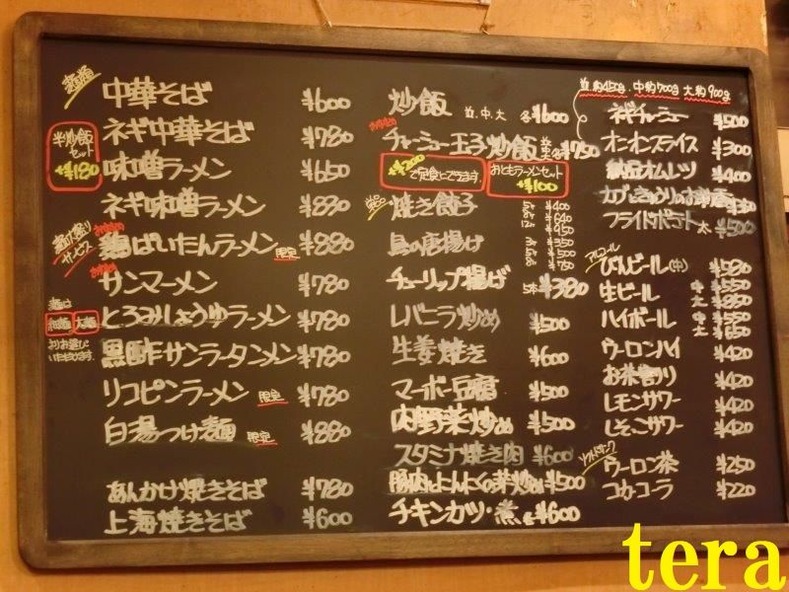 麺類
中華そば ¥600
ネギ中華そば ¥780
半炒飯
セット
+¥180
味噌ラーメン ¥650
ネギ味噌ラーメン ¥830
麺大盛り
サービス
鶏ぱいたんラーメン 限定 ¥880
サンマーメン ¥780
麺は
細麺 太麺
お選び
いただけます
とろみしょうゆラーメン ¥780
黒酢サンラータンメン ¥780
リコピンラーメン 限定 ¥780
白湯つけ麺 限定 ¥880
あんかけ焼きそば ¥780
上海焼きそば ¥600
炒飯 並.中.大 各¥600
チャーシュー玉子炒飯 ¥750
+¥200
で定食にできます。
おともラーメンセット
+¥100
焼き餃子
鳥の唐揚げ
チューリップ揚げ 5本 ¥380
レバニラ炒め ¥500
生姜焼き ¥600
マーボー豆腐 ¥500
肉野菜炒め ¥500
スタミナ焼き肉 ¥600
豚肉とにんにくの芽炒め ¥500
チキンカツ・煮 各¥600
並約450g.中約700g 大約900g
ネギチャーシュー ¥500
オニオンスライス ¥300
納豆オムレツ ¥400
カブときゅうりのお新香
フライドポテト 大 ¥500
アルコール
びんビール(中) ¥580
生ビール 中 ¥550 大 ¥850
ハイボール 中 大
ウーロンハイ ¥420
お茶割り ¥420
レモンサワー ¥420
しそこサワー ¥420
ソフトドリンク
ウーロン茶 ¥250
コカ・コーラ ¥220
tera